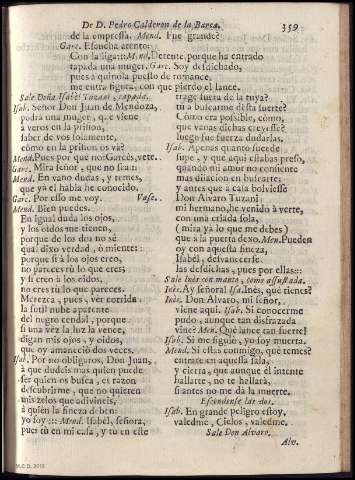 De D. Pedro Calderon de la Barca.
359
de la empressa. Mend. Fue grande?
Garc. Escucha atento:
Con la siga::: Mend. Detente, porque ha entrado
tapada una muger. Garc. Soy desdichado,
pues à quinola puesto de romance,
me entra figura, con que pierdo el lance.
Sale Doña Isabel Tuzani, tapada.
Isab. Señor Don Juan de Mendoza,
podrà una muger, que viene
à veros en la prision,
saber de vos solamente,
còmo en la prision os và?
Mend. Pues por què no? Garcès, vete.
Garc. Mira señor, que no sea::
Mend. En vano dudas, y temes,
que yà el habla he conocido.
Garc. Por esso me voy. Vase.
Mend. Bien puedes.
En igual duda los ojos,
y los oidos me tienen,
porque de los dos no sè
qual dixo verdad, ò miente:
porque si à los ojos creo,
no pareces tù lo que eres;
y si creo à los oidos,
no eres tù lo que pareces.
Merezca, pues, vèr corrida
la sutil nube aparente
del negro cendal, porque
si una vez la luz la vence,
digan mis ojos, y oidos,
que oy amaneciò dos veces.
Isab. Por no obligaros, Don Juan,
à que dudeis mas quien puede
ser quien os busca, es razon
descubrirme, que no quieren
mis zelos que adivineis,
à quien la fineza deben:
yo soy::: Mend. Isabèl, señora,
pues tù en mi casa, y tù en este
trage fuera de la tuya?
tù à buscarme de esta suerte?
Còmo era possible, còmo,
que vanas dichas creyesse?
luego fue fuerza dudarlas.
Isab. Apenas quanto sucede
supe, y que aqui estabas preso,
quando mi amor no consiente
mas dilacion en buscarte;
y antes que à casa bolviesse
Don Alvaro Tuzani
mi hermano, he venido à verte,
con una criada sola,
(mira yà lo que me debes)
que à la puerta dexo. Men. Pueden
oy con aquesta fineza,
Isabèl, desvanecerse
las desdichas, pues por ellas:::
Sale Inès con manto, como assustada.
Inès. Ay señora! Isa. Inès, què tienes?
Inès. Don Alvaro, mi señor,
viene aqui. Isab. Si conocerme
pudo, aunque tan disfrazada
vine? Men. Què lance tan fuerte!
Isab. Si me siguiò, yo soy muerta.
Mend. Si estàs conmigo, què temes?
entrate en aquessa sala,
y cierra, que aunque èl intente
hallarte, no te hallarà,
si antes no me dà la muerte.
Escondense las dos.
Isab. En grande peligro estoy,
valedme, Cielos, valedme.
Sale Don Alvaro.
Alv.
M.C.D. 2018